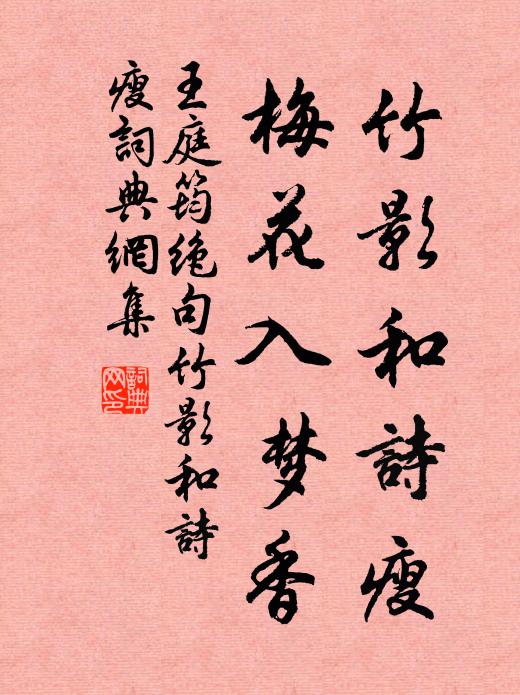 竹影和詩瘦
梅花入梦香
王庭筠绝句竹影和詩
瘦詞典網集
詞典
网印